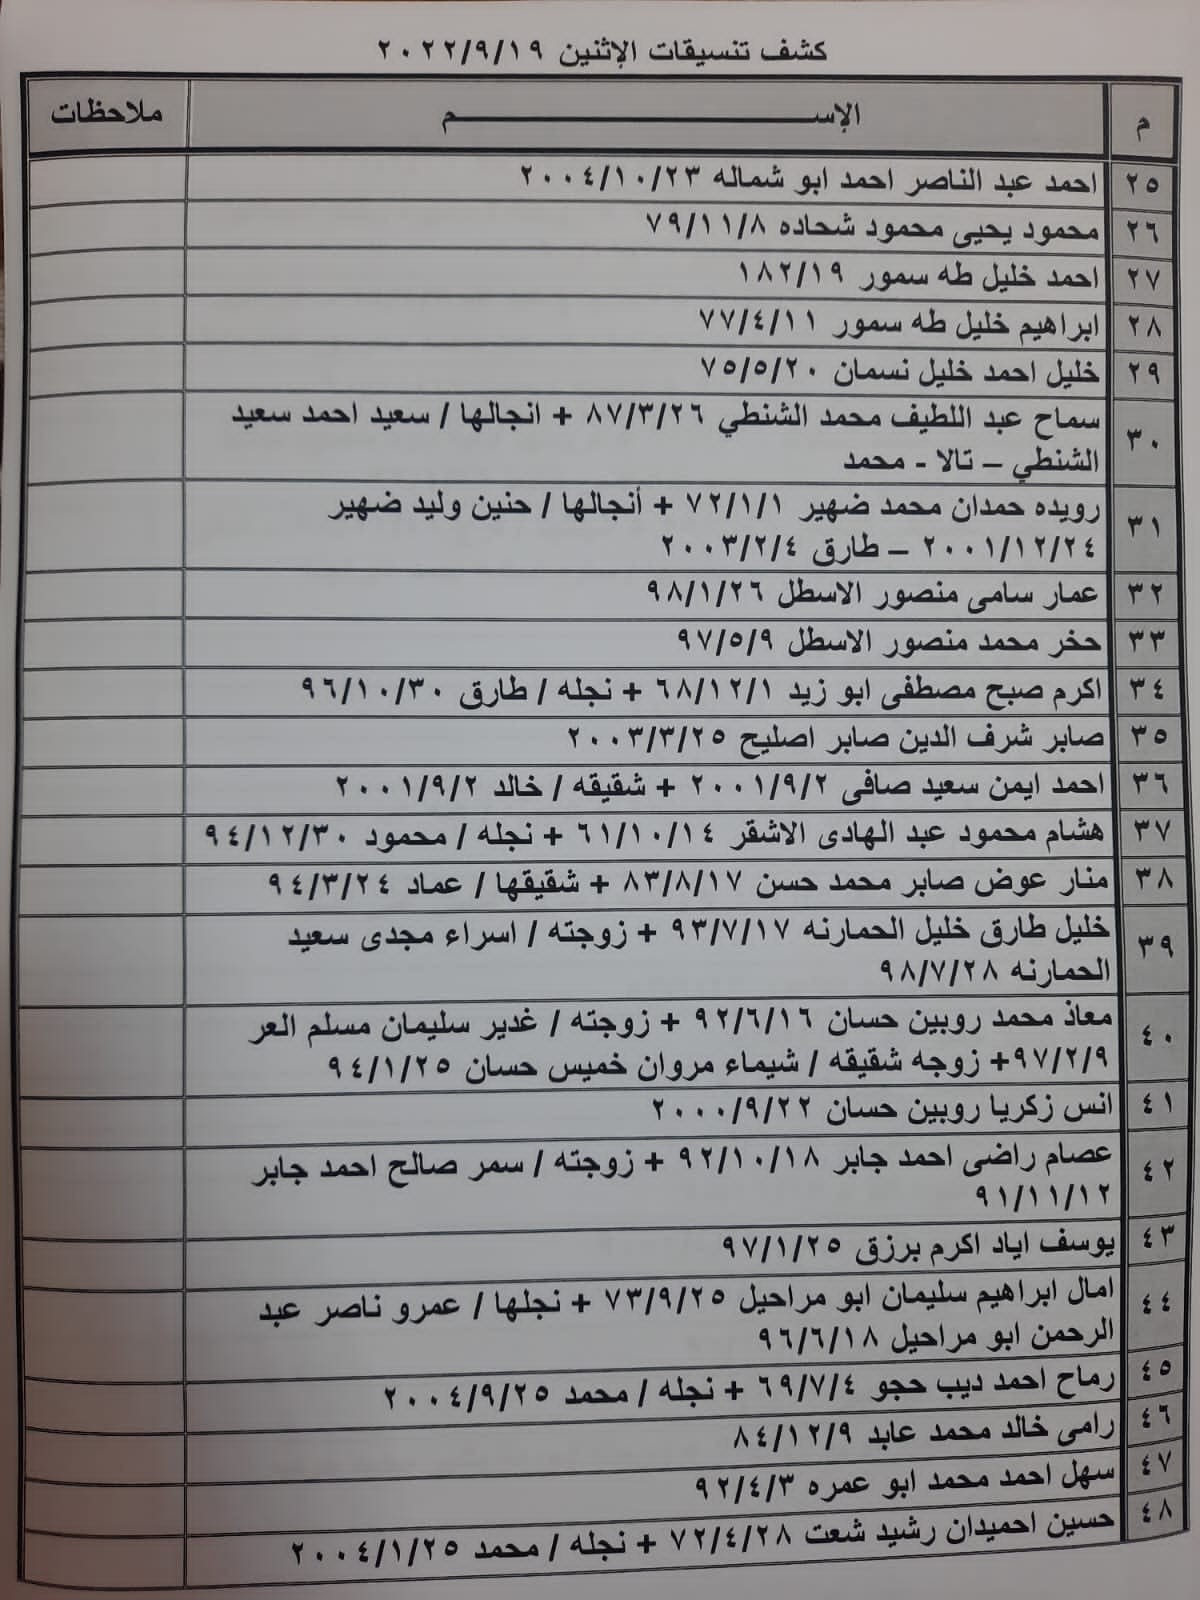 كشف تنسيقات الإثنين ٢٠٢٢/٩/١٩
م الإســـــم ملاحظات
٢٥ احمد عبد الناصر احمد ابو شماله ٢٠٠٤/١٠/٢٣
٢٦ محمود يحيى محمود شحاده ٧٩/١١/٨
٢٧ احمد خليل طه سمور ١٨٢/١٩
٢٨ ابراهيم خليل طه سمور ٧٧/٤/١١
٢٩ خليل احمد خليل نسمان ٧٥/٥/٢٠
٣٠ سماح عبد اللطيف محمد الشنطي ٨٧/٣/٢٦ + انجالها / سعيد احمد سعيد
الشنطي – تالا - محمد
٣١ رويده حمدان محمد ضهير ٧٢/١/١ + أنجالها / حنين وليد ضهير
٢٠٠١/١٢/٢٤ – طارق ٢٠٠٣/٢/٤
٣٢ عمار سامى منصور الاسطل ٩٨/١/٢٦
٣٣ حخر محمد منصور الاسطل ٩٧/٥/٩
٣٤ اكرم صبح مصطفى ابو زيد ٦٨/١٢/١ + نجله / طارق ٩٦/١٠/٣٠
٣٥ صابر شرف الدين صابر اصليح ٢٠٠٣/٣/٢٥
٣٦ احمد ايمن سعيد صافى ٢٠٠١/٩/٢ + شقيقه / خالد ٢٠٠١/٩/٢
٣٧ هشام محمود عبد الهادى الاشقر ٦١/١٠/١٤ + نجله / محمود ٩٤/١٢/٣٠
٣٨ منار عوض صابر محمد حسن ٨٣/٨/١٧ + شقيقها / عماد ٩٤/٣/٢٤
٣٩ خليل طارق خليل الحمارنه ٩٣/٧/١٧ + زوجته / اسراء مجدى سعيد
الحمارنه ٩٨/٧/٢٨
٤٠ معاذ محمد روبين حسان ٩٢/٦/١٦ + زوجته / غدير سليمان مسلم العر
٩٧/٢/٩+ زوجه شقيقه / شيماء مروان خميس حسان ٩٤/١/٢٥
٤١ انس زكريا روبين حسان ٢٠٠٠/٩/٢٢
٤٢ عصام راضى احمد جابر ٩٢/١٠/١٨ + زوجته / سمر صالح احمد جابر
٩١/١١/١٢
٤٣ يوسف اياد اكرم برزق ٩٧/١/٢٥
٤٤ امال ابراهيم سليمان ابو مراحيل ٧٣/٩/٢٥ + نجلها / عمرو ناصر عبد
الرحمن ابو مراحيل ٩٦/٦/١٨
٤٥ رماح احمد ديب حجو ٦٩/٧/٤ + نجله / محمد ٢٠٠٤/٩/٢٥
٤٦ رامى خالد محمد عابد ٨٤/١٢/٩
٤٧ سهل احمد محمد ابو عمره ٩٢/٤/٣
٤٨ حسين احميدان رشيد شعت ٧٢/٤/٢٨ + نجله / محمد ٢٠٠٤/١/٢٥